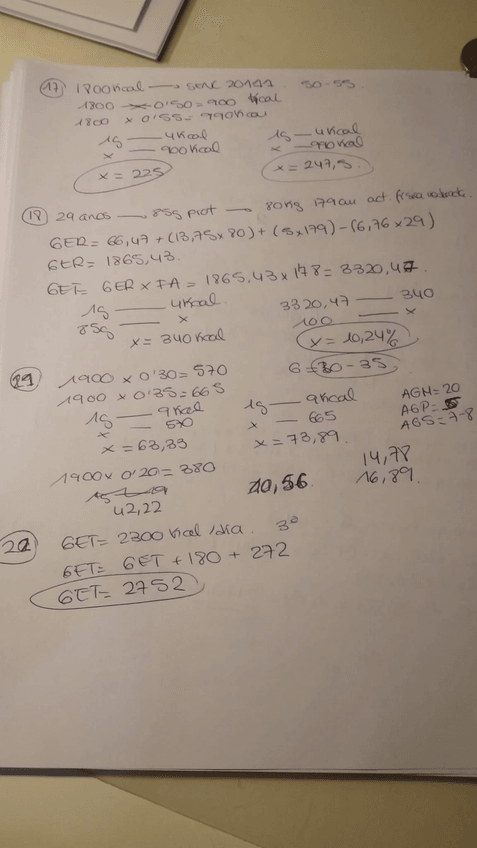 17 1800 Kcal → SENC 2011. 50-55.
1800 × 0'50 = 900 Kcal
1800 × 0'55 = 990 Kcal
1g — 4 Kcal 1g — 4 Kcal
x — 900 Kcal x — 990 Kcal
x = 225 x = 247,5.
18 29 años → 85g prot → 80 Kg 179 cm act. física
GER = 66,47 + (13,75 x 80) + (5 x 179) - (6,76 x 29)
GER = 1865,43.
GET = GER x FA = 1865,43 x 1'78 = 3320,47.
1g — 4 Kcal. 3320,47 — 340
85g — x 100 — x
x = 340 Kcal x = 10,24%
19 1900 x 0'30 = 570 G = 30 - 35
1900 x 0'35 = 665
1g — 9 Kcal 1g — 9 Kcal AGM = 20
x — 570 x — 665 AGP = 5
x = 63,33 x = 73,89. AGS = 7-8
1900 x 0'20 = 380 14,78
42,22 10,56 16,89.
20 GET = 2300 Kcal/dia. 3º
GET = GET + 180 + 272
GET = 2752